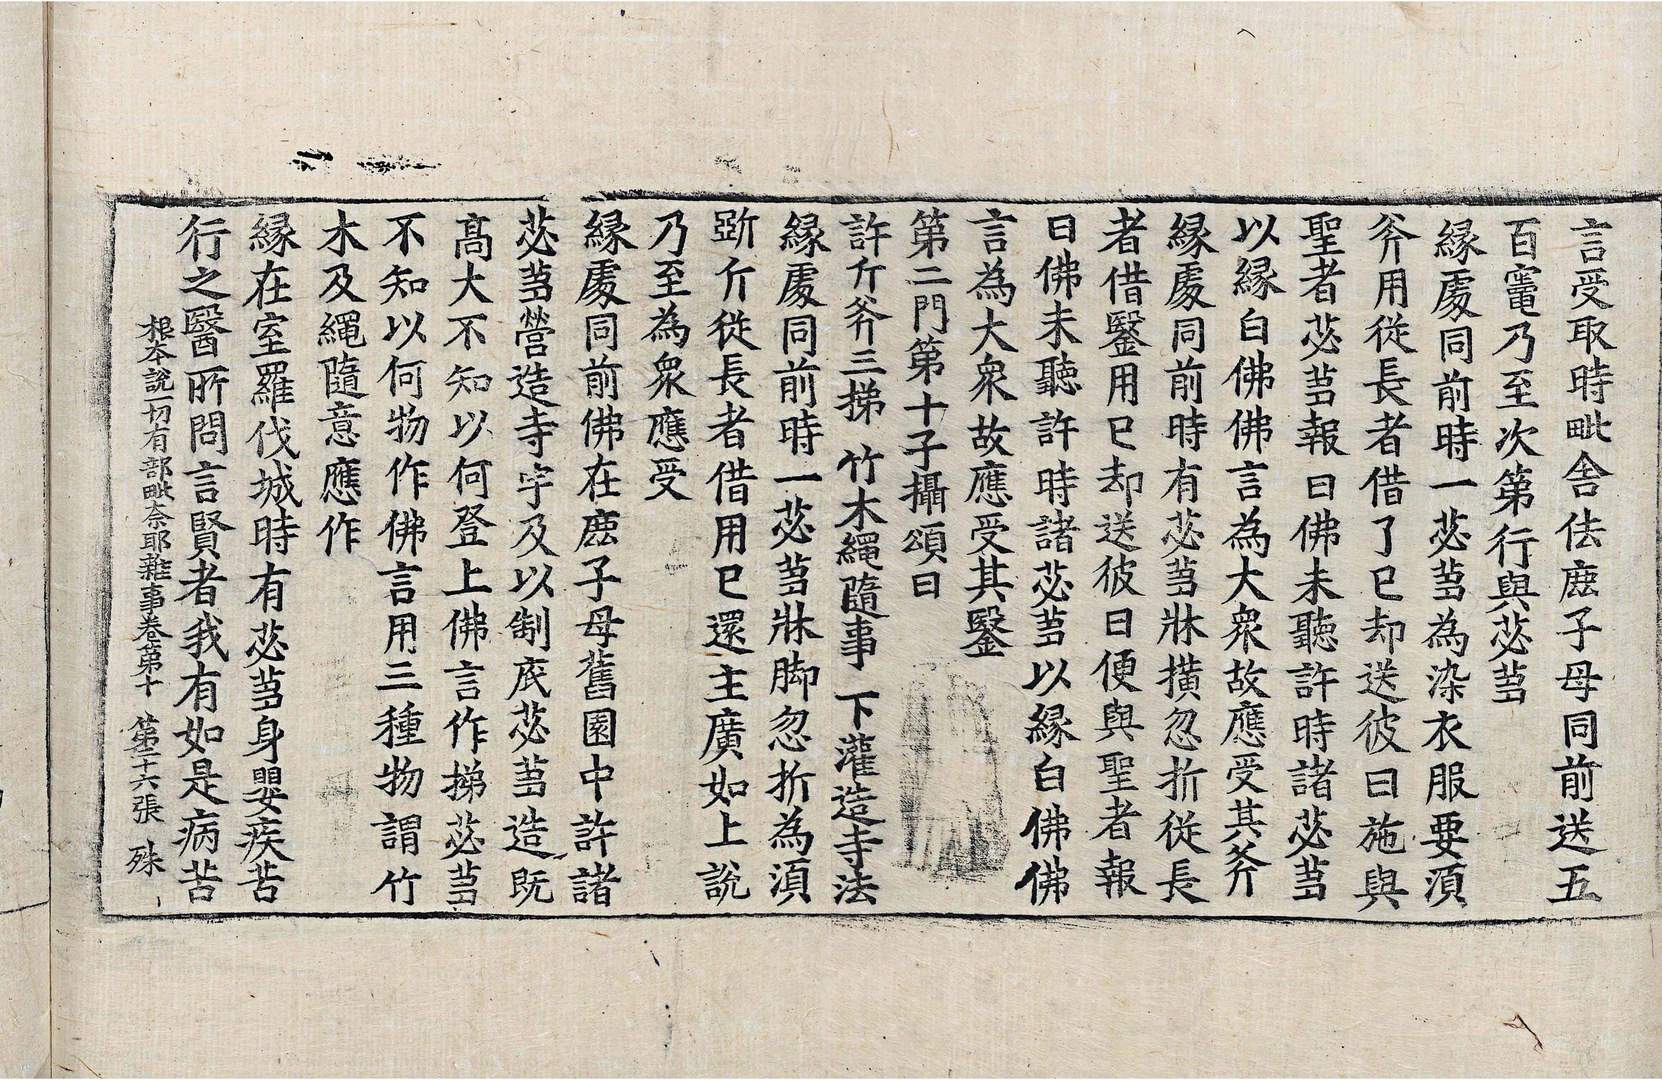 言受取時毗舍佉鹿子母同前送五
百竃乃至次第行與苾蒭
縁處同前時一苾蒭為染衣服要湏
斧用從長者借了已却送彼曰施與
聖者苾蒭報曰佛未聽許時諸苾蒭
以縁白佛佛言為大衆故應受其斧
縁處同前時有苾蒭牀擴忽折從長
者借鑿用已却送彼曰便與聖者報
曰佛未聽許時諸苾蒭以縁白佛佛
言為大衆故應受其鑿
第二門第十子攝頌曰
許斤斧三梯 竹木繩隨事 下灌造寺法
縁處同前時一苾蒭牀脚忽折為湏
斵斤從長者借用已還主廣如上說
乃至為衆應受
縁處同前佛在鹿子母舊園中許諸
苾蒭營造寺宇及以制底苾蒭造既
高大不知以何登上佛言作梯苾蒭
不知以何物作佛言用三種物謂竹
木及繩隨意應作
縁在室羅伐城時有苾蒭身嬰疾苦
行之醫所問言賢者我有如是病苦
根本說一切有部毗奈耶雜事卷第十 第二十六張 殊